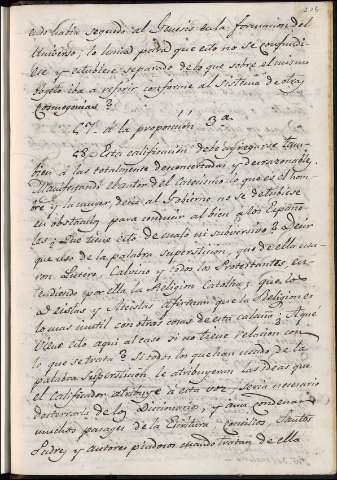 cido había seguido al Genesis en la formacion del
Universo; lo unico pedia que esto no se confundie
se y estubiese separado de lo que sobre el mismo
objeto iba a referir conforme al sistema de otras
Cosmogonias?
47. A la proposicion 3.ª
48. Esta calificacion debe agregarse tam
bien á las totalmente desconcertadas y desrazonables.
Manifestando el autor del Catecismo lo que es el hom
bre y la muger, decia al Gobierno no se detubiese
en obstaculos para conducir al bien a los Españo
les; Que tiene esto de malo ni subversivo? Decir
que uso de la palabra supersticion, que de ella usa
ron Lutero, Calvino y todos los Protestantes, en
tendiendo por ella la Religion Catolica; que los
Deistas y Ateistas afirman que la Religion es
la mas inutil con otras cosas de esta calaña; A que
viene esto aqui al caso si no tiene relacion con
lo que se trata? Si todos los que han usado de la
palabra supersticion le atribuyeran las ideas que
el Calificador atribuye á esta voz sería necesario
desterrarla de los Diccionarios, y aun condenar
muchos pasages de la Escritura Concilios, Santos
Padres, y autores piadosos cuando tratan de ella